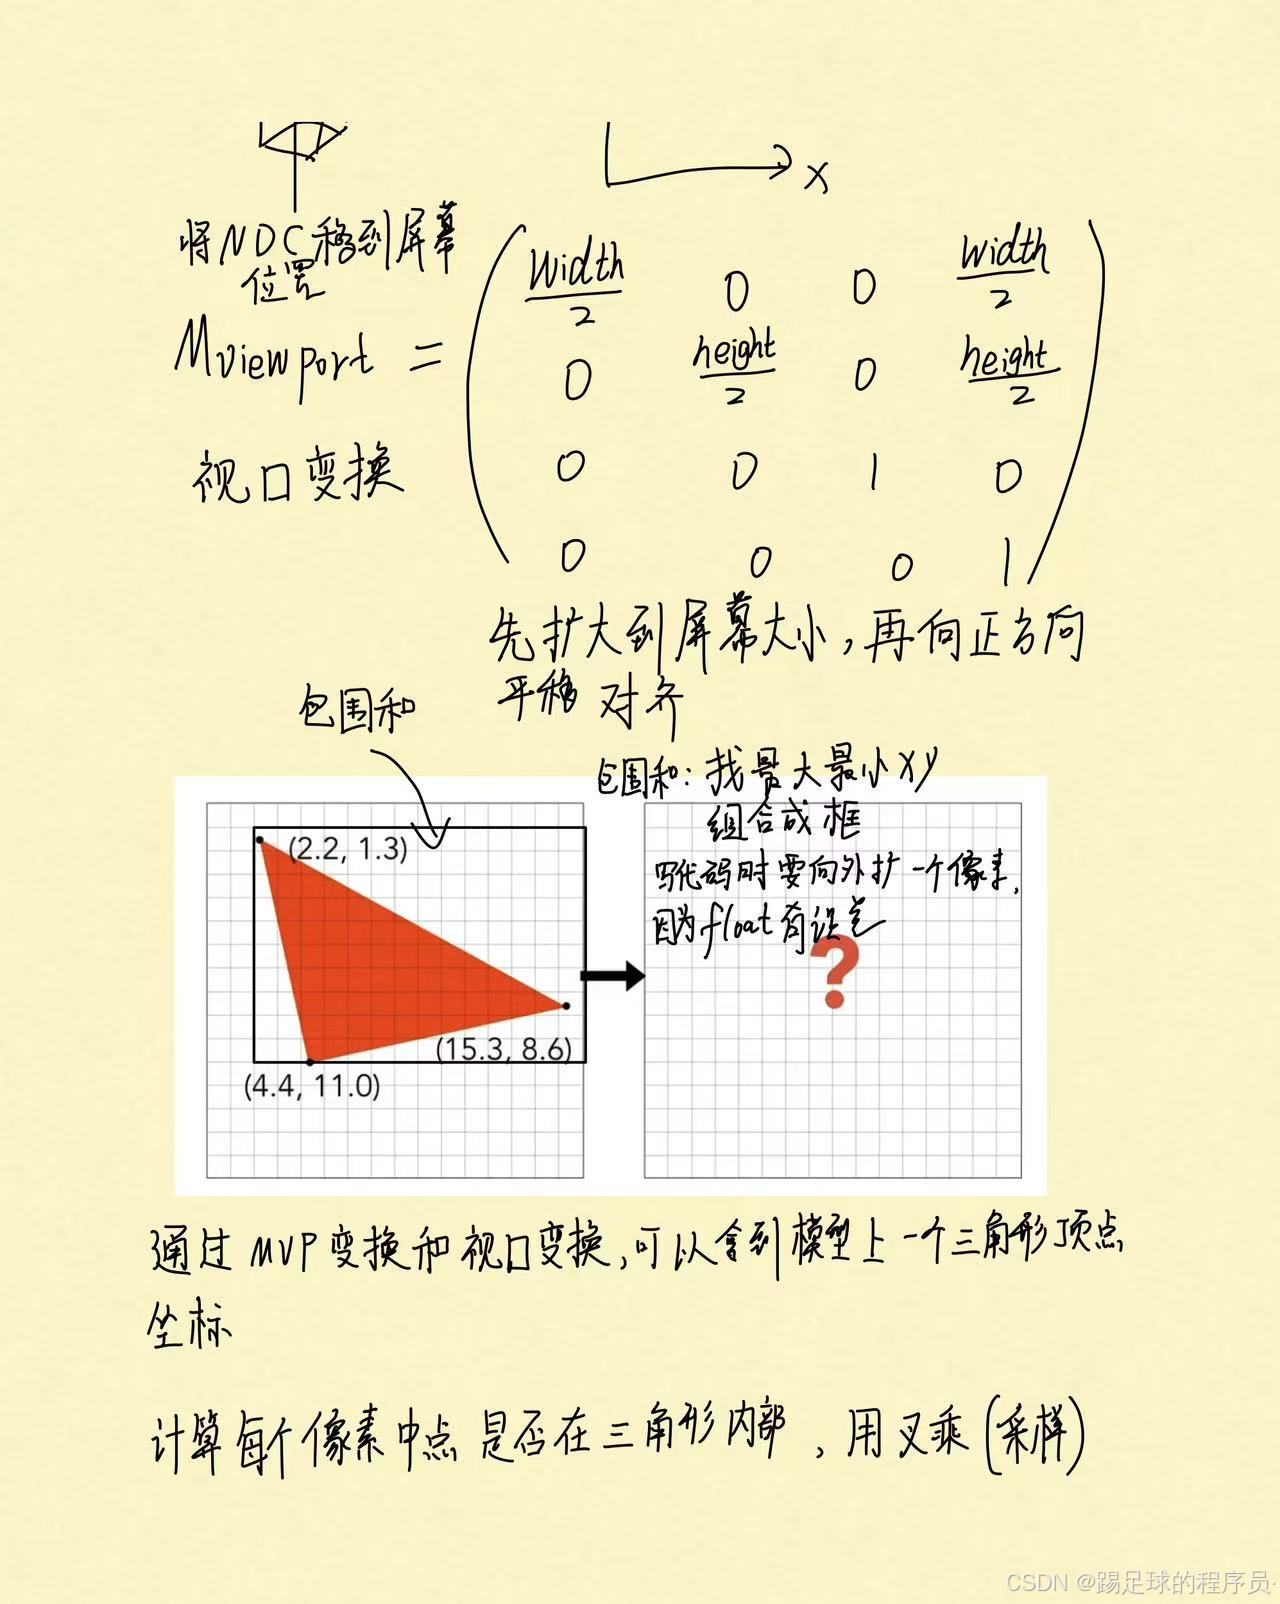 x
将NDC移到屏幕
位置
Mviewport = 
width/2 0 0 width/2
0 height/2 0 height/2
0 0 1 0
0 0 0 1
视口变换
先扩大到屏幕大小,再向正方向
平移对齐
包围和
包围和:找最大最小xy
组合成框
写代码时要向外扩一个像素,
因为float有误差
(2.2, 1.3)
?
(15.3, 8.6)
(4.4, 11.0)
通过MVP变换和视口变换,可以拿到模型上一个三角形顶点
坐标
计算每个像素中点是否在三角形内部,用叉乘(采样)
CSDN @踢足球的程序员·